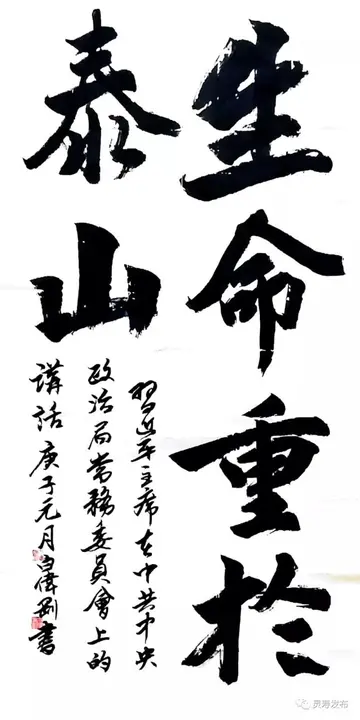 生命重於
泰山
習近平主席在中共中央
政治局常務委員會上的
講話 庚子元月
偉剛書
灵寿发布